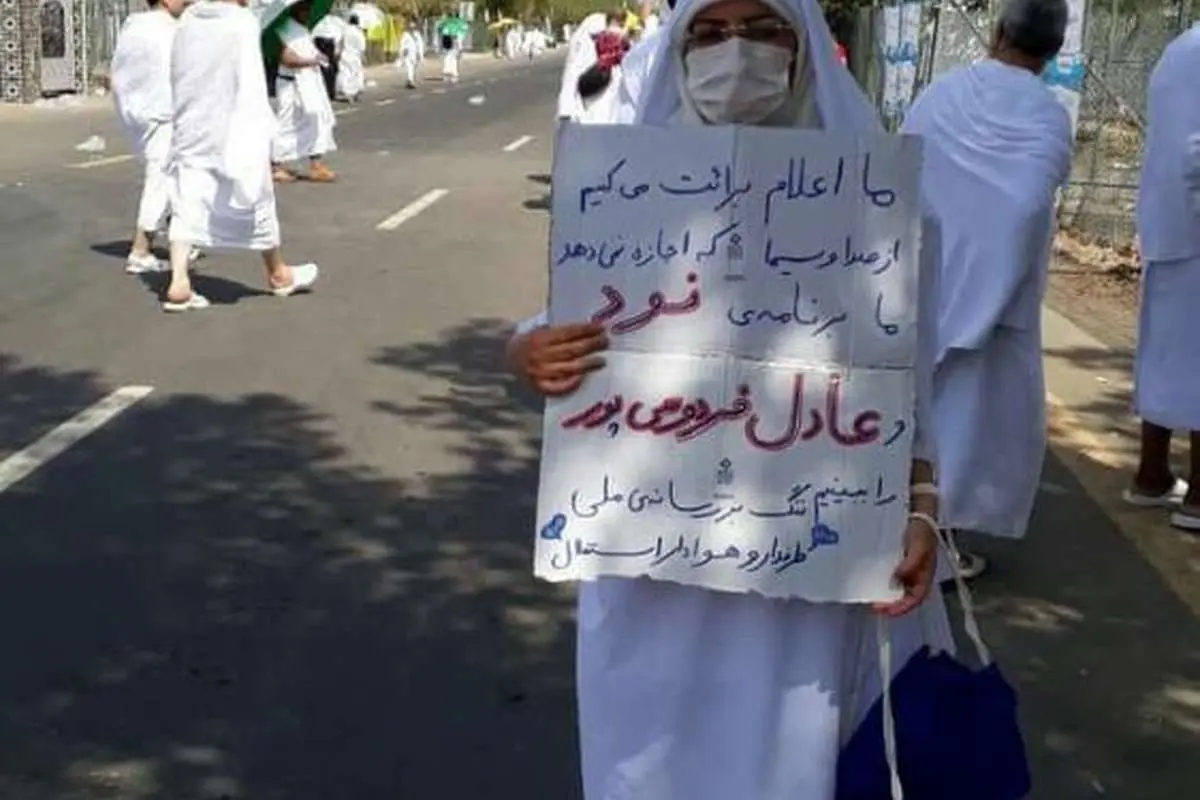 ما اعلام برائت می‌کنیم
از صدا و سیما که اجازه نمی‌دهد
ما برنامه‌ی نود
و عادل فردوسی پور
را ببینیم ننگ بر رسانه‌ی ملی
طرفدار و هوادار استقلال